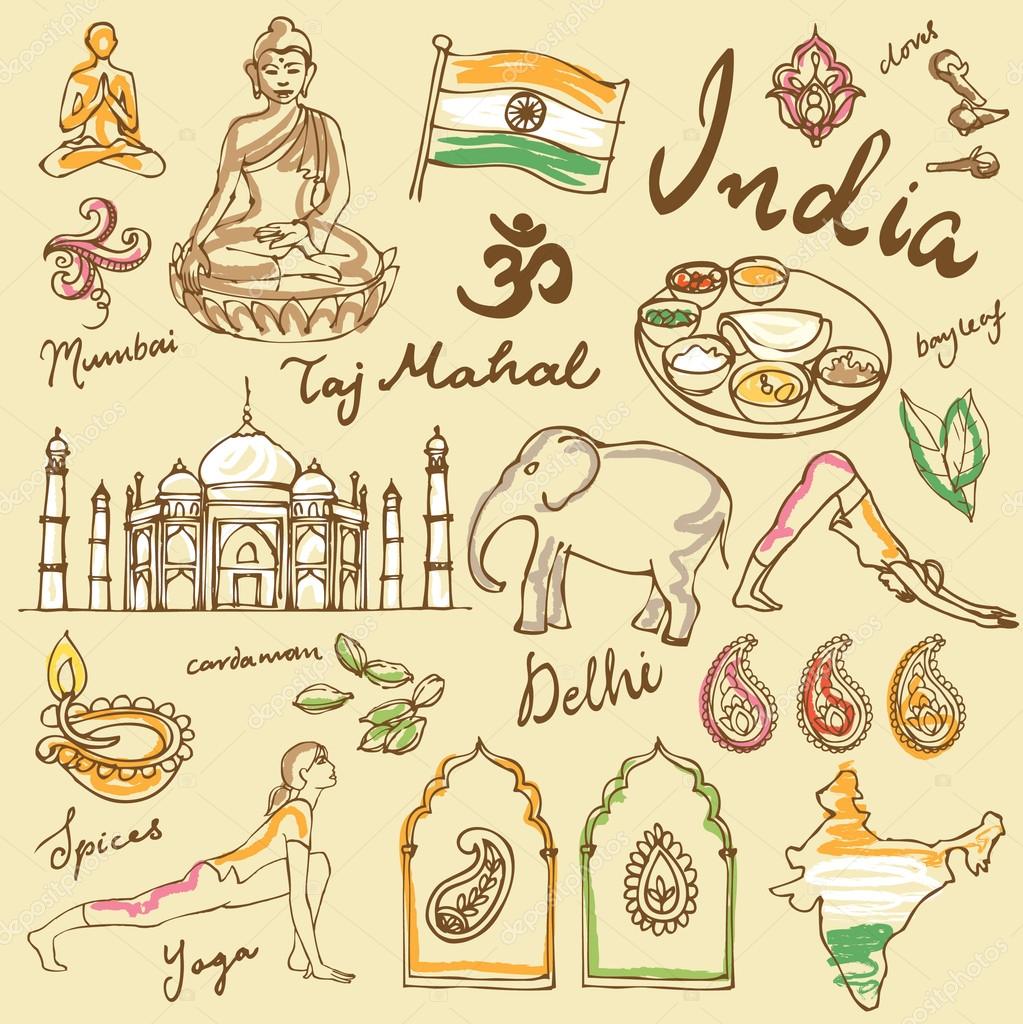 cloves
India
ॐ
Mumbai
Taj Mahal
bay leaf
cardaman
Delhi
Spices
Yoga